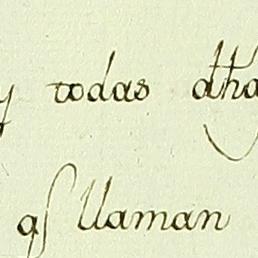 y todas dha
qͤ llaman